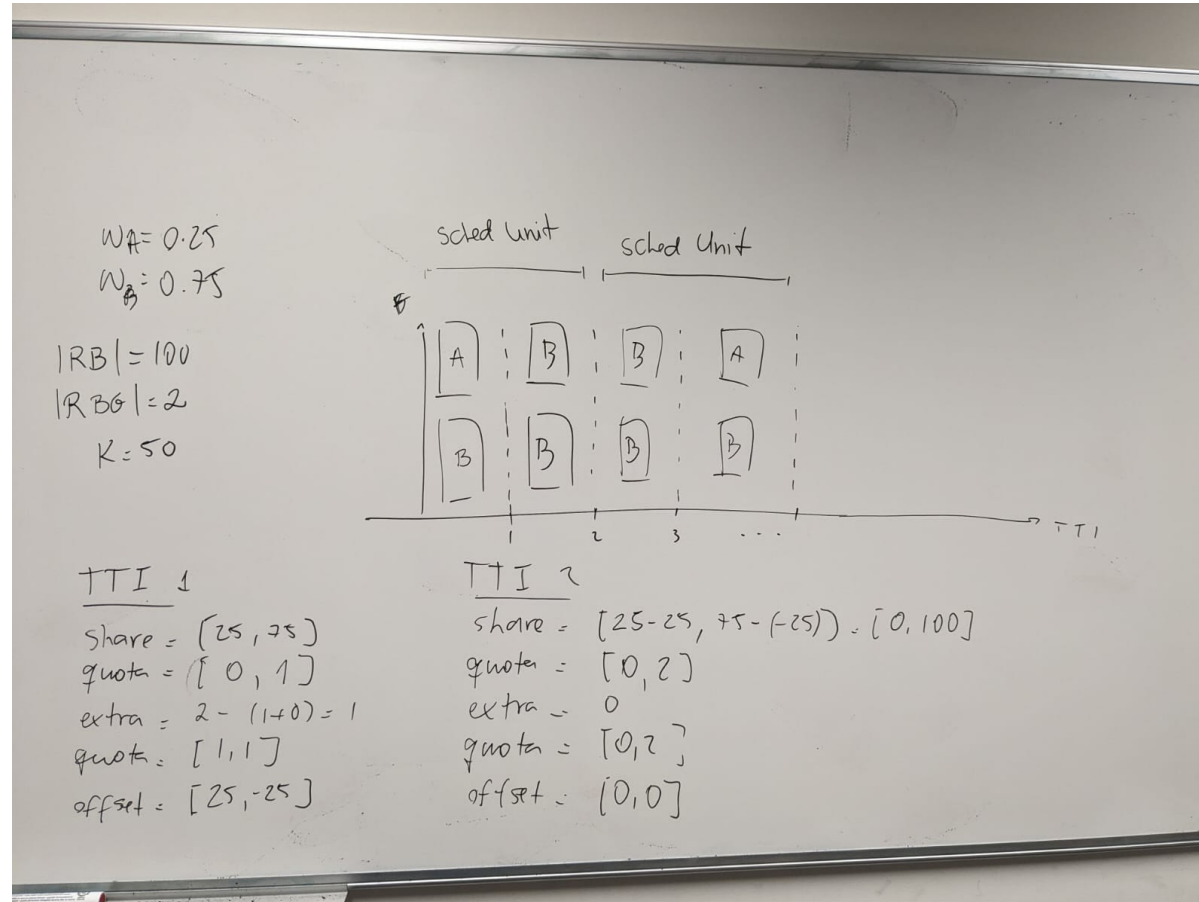 WA= 0.25
WB= 0.75
|RB|= 100
|RBG|= 2
K= 50
sched Unit
sched Unit
A B B A
B B B B
1 2 3 ...
TTI
TTI 1
share = [25, 75]
quota = [0, 1]
extra = 2 - (1+0) = 1
quota = [1, 1]
offset = [25, -25]
TTI 2
share = [25-25, 75-(-25)] = [0, 100]
quota = [0, 2]
extra = 0
quota = [0, 2]
offset = [0, 0]